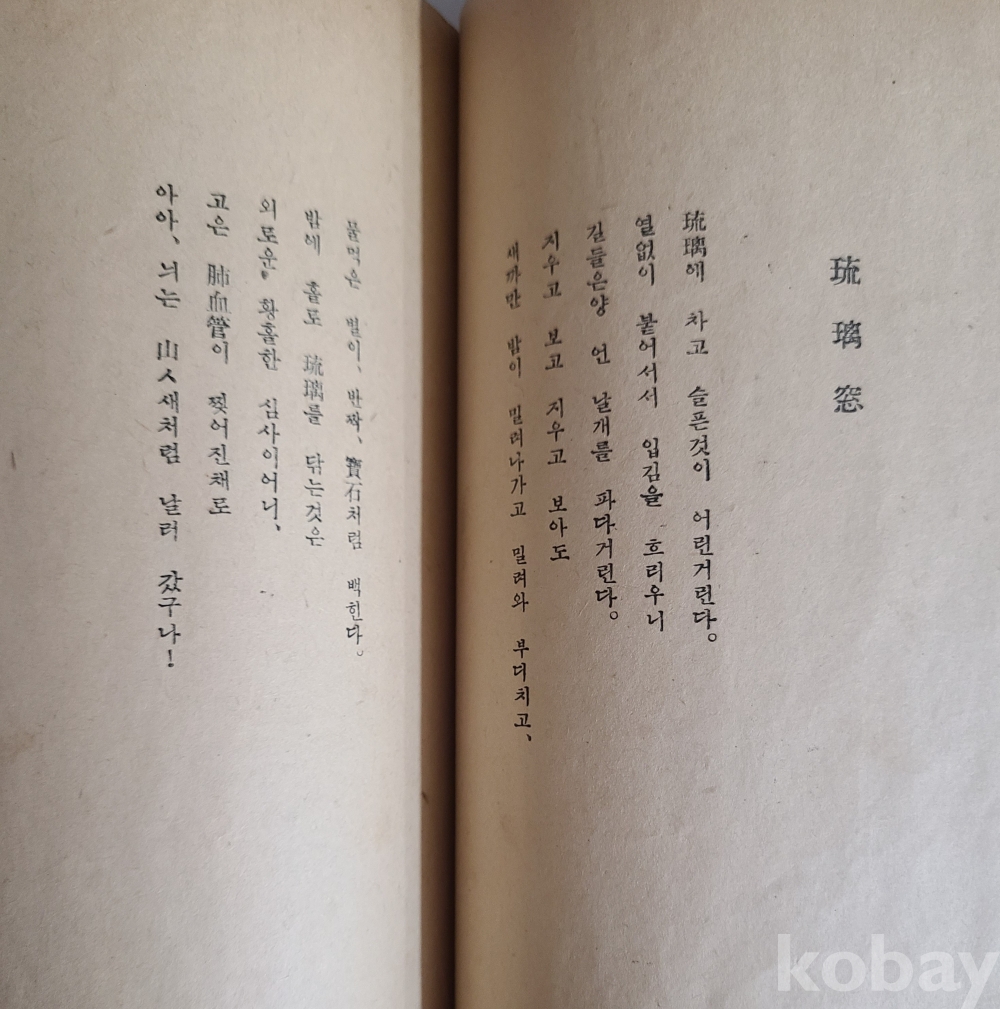 琉璃窓
琉璃에 차고 슬픈것이 어린거린다。
열없이 붙어서서 입김을 흐리우니
길들은양 언 날개를 파다거린다。
지우고 보고 지우고 보아도
새까만 밤이 밀려나가고 밀려와 부디치고、
물먹은 별이、 반짝、 寶石처럼 백힌다。
밤에 홀로 琉璃를 닦는것은
외로운 황홀한 심사이어니、
고은 肺血管이 찢어진채로
아아、 늬는 山ㅅ새처럼 날러 갔구나!
kobay